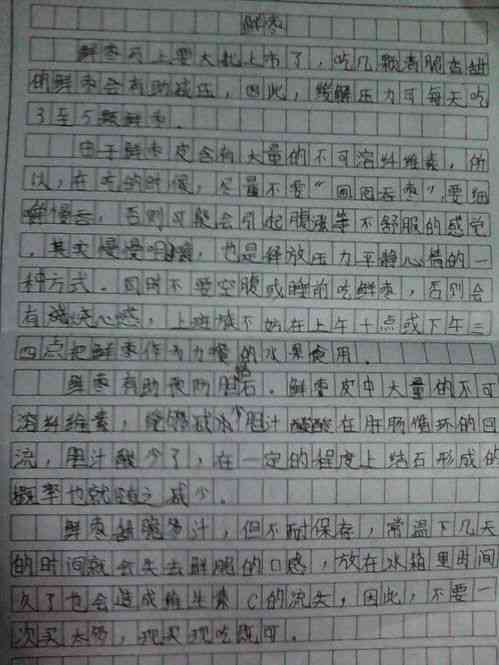 鲜枣
鲜枣马上要大批上市了，吃几颗清脆香甜
的鲜枣会有助减压，因此，缓解压力可每天吃
3至5颗鲜枣。
由于鲜枣皮含有大量的不可溶纤维素，所
以，在吃的时候，尽量不要“囫囵吞枣”，要细
嚼慢咽，否则可能会引起腹涨等不舒服的感觉
。其实慢慢咀嚼，也是释放压力平静心情的一
种方式。同时不要空腹或睡前吃鲜枣，否则会
有烧心感，上班族不妨在上午十点或下午三
四点把鲜枣作为加餐的水果食用。
鲜枣有助预防胆结石。鲜枣皮中大量的不可
溶纤维素，能够减少胆汁酸在肝肠循环的回
流，胆汁酸少了，在一定的程度上结石形成的
概率也就随之减少。
鲜枣甜脆多汁，但不耐保存，常温下几天
的时间就会失去鲜脆的口感，放在冰箱里时间
久了也会造成维生素C的流失，因此，不要一
次买太多，现买现吃即可。